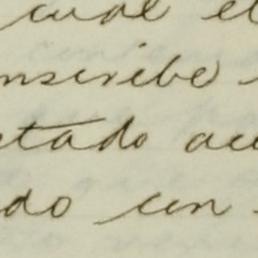 cual el
nscribe
etado acu
do con